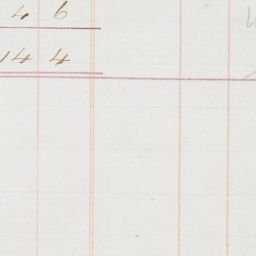 4 6
14 4